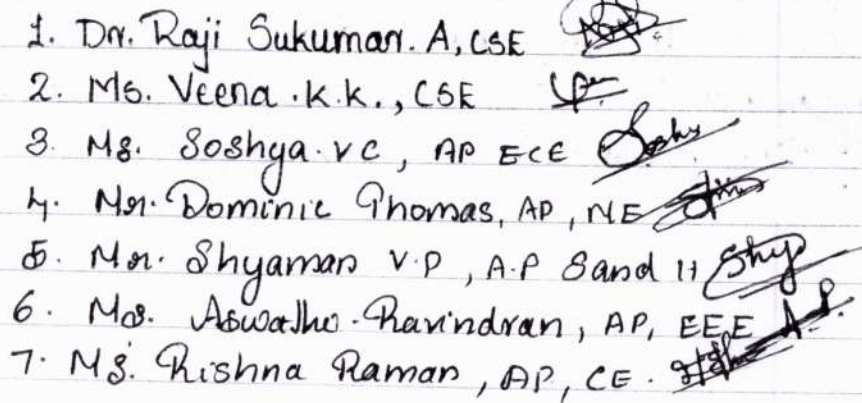 1. Dr. Raji Sukumar. A, CSE
2. Ms. Veena .K.K., CSE
3. Ms. Soshya. V C, AP ECE
4. Mr. Dominic Thomas, AP, ME
5. Mr. Shyaman V.P, A.P S and H
6. Ms. Aswathy Ravindran, AP, EEE
7. Ms. Rishna Raman, AP, CE.